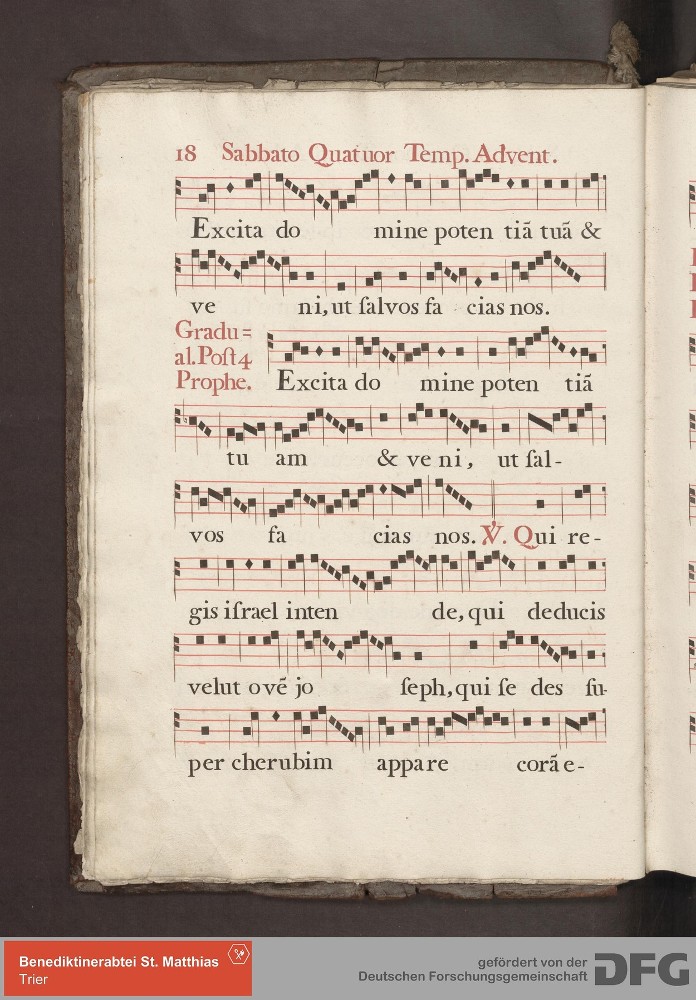 18 Sabbato Quatuor Temp. Advent.
Excita do mine poten tiā tuā &
ve ni, ut ſalvos fa cias nos.
Gradu=
al. Poſt 4
Prophe. Excita do mine poten tiā
tu am & ve ni, ut ſal-
vos fa cias nos. ℣. Qui re-
gis iſrael inten de, qui deducis
velut ovē jo ſeph, qui ſe des ſu-
per cherubim appare corā e-
Benediktinerabtei St. Matthias
Trier
gefördert von der
Deutschen Forschungsgemeinschaft DFG